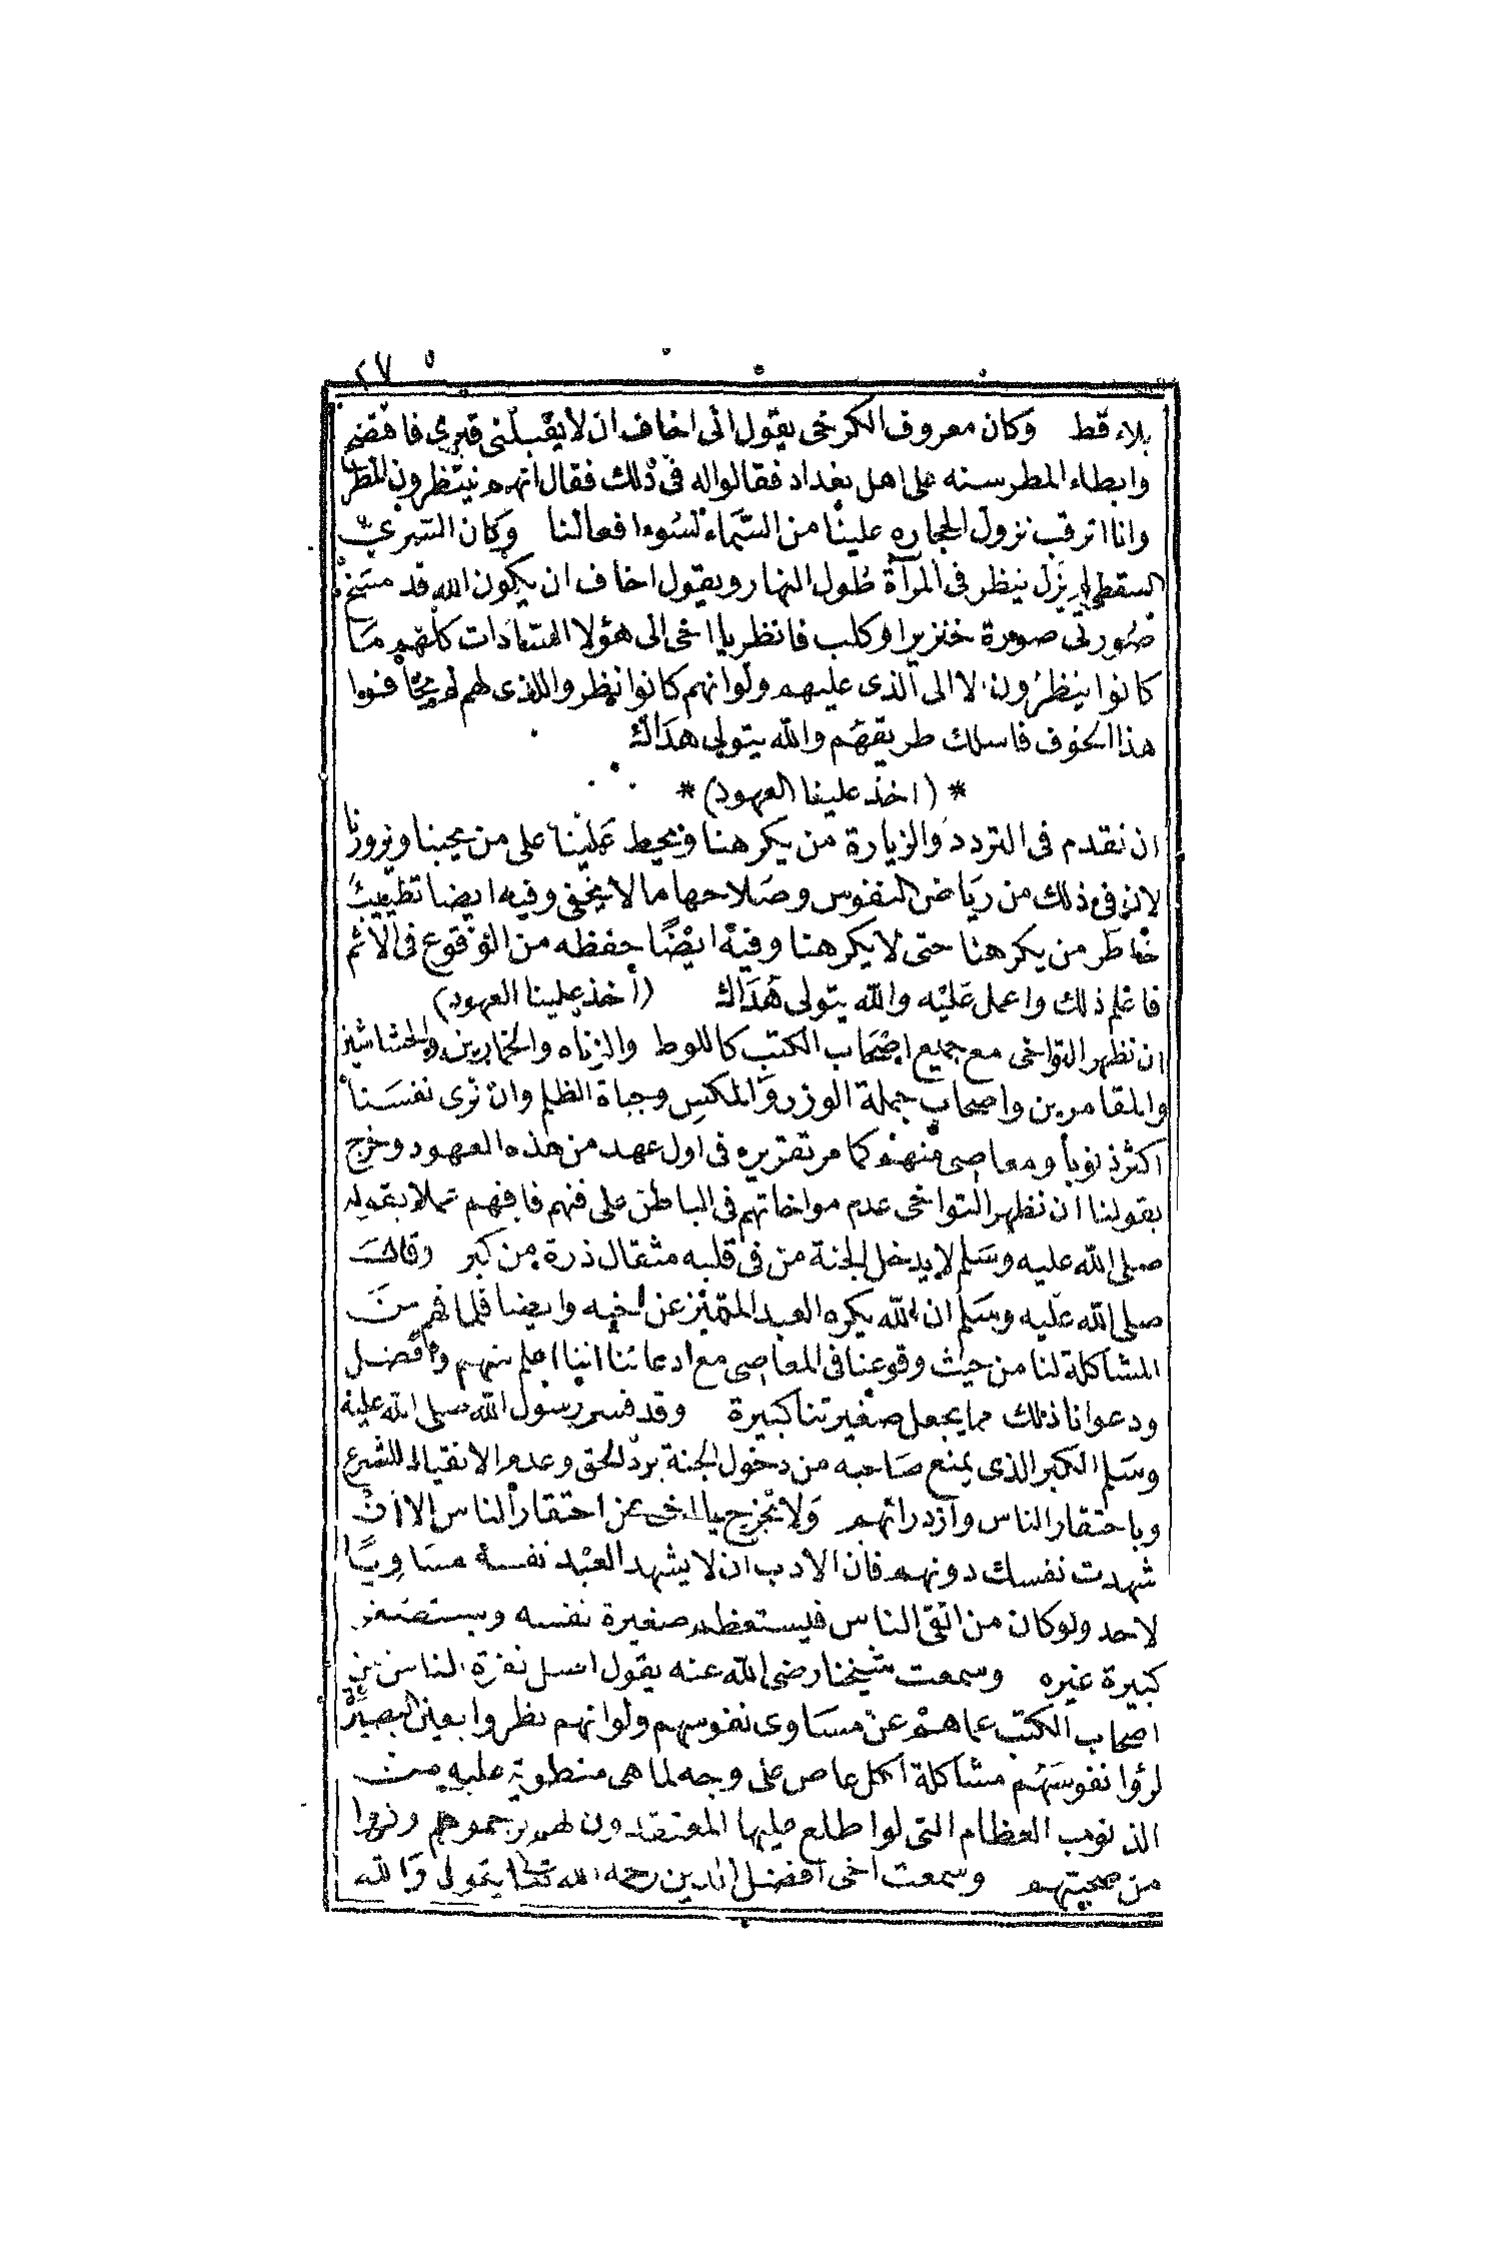 ٢٧
بلاء قط وكان معروف الكرخى يقول انى اخاف ان لا يقبلنى قبرى فافتضح
وابطاء المطر سنه على اهل بغداد فقالوا له فى ذلك فقال انهم ينتظرون المطر
وانا اترقب نزول الحجاره علينا من السماء لسوء افعالنا وكان السرى
السقطى لم يزل ينظر فى المرآة طول النهار ويقول اخاف ان يكون الله قد مسخ
صورتى صورة خنزير او كلب فانظر يا اخى الى هؤلا السادات كلهم ما
كانوا ينظرون الا الى الذى عليهم ولو انهم كانوا نظروا للذى لهم لم يخافوا
هذا الخوف فاسلك طريقهم والله يتولى هداك
* (اخذ علينا العهود) *
ان نقدم فى التردد والزيارة من يكرهنا ويحيط علينا على من يحبنا ويزورنا
لان فى ذلك من رياض النفوس وصلاحها ما لا يخفى وفيه ايضا تطييب
خاطر من يكرهنا حتى لا يكرهنا وفيه ايضًا حفظه من الوقوع فى الاثم
فاعلم ذلك واعمل عليه والله يتولى هداك (أخذ علينا العهود)
ان نظهر التواخى مع جميع اصحاب الكتب كاللوط والزناه والخمارين والحشاشين
والمقامرين واصحاب حملة الوزر والمكس وجباة الظلم وان نرى نفسنا
اكثر ذنوبا ومعاصى منهم كما مر تقريره فى اول عهد من هذه العهود وخرج
بقولنا ان نظهر التواخى عدم مواخاتهم فى الباطن على فنهم فافهم عملا بقوله
صلى الله عليه وسلم لا يدخل الجنة من فى قلبه مثقال ذرة من كبر وقال
صلى الله عليه وسلم ان الله يكره العبد المتميز عن اخيه وايضا فلما فهم من
المشاكلة لنا من حيث وقوعنا فى المعاصى مع ادعائنا اننا اعلم منهم وأفضل
ودعوانا ذلك مما يجعل صغيرتنا كبيرة وقد فسر رسول الله صلى الله عليه
وسلم الكبر الذى يمنع صاحبه من دخول الجنة برد الحق وعدم الانقياد للشرع
وباحتقار الناس وازدرائهم ولا تخرج يا اخى عن احتقار الناس الا ان
شهدت نفسك دونهم فان الادب ان لا يشهد العبد نفسه مساويًا
لاحد ولو كان من اتقى الناس فيستعظم صغيرة نفسه ويستصغر
كبيرة غيره وسمعت شيخنا رضى الله عنه يقول اصل نفرة الناس من
اصحاب الكتب عماهم عن مساوى نفوسهم ولو انهم نظروا بعين البصيرة
لرؤا نفوسهم مشاكلة لكل عاص على وجه لما هى منطوية عليه من
الذنوب العظام التى لو اطلع عليها المعتقدون لهم رجموهم وفروا
من صحبتهم وسمعت اخى افضل الدين رحمه الله تعالى يقول والله